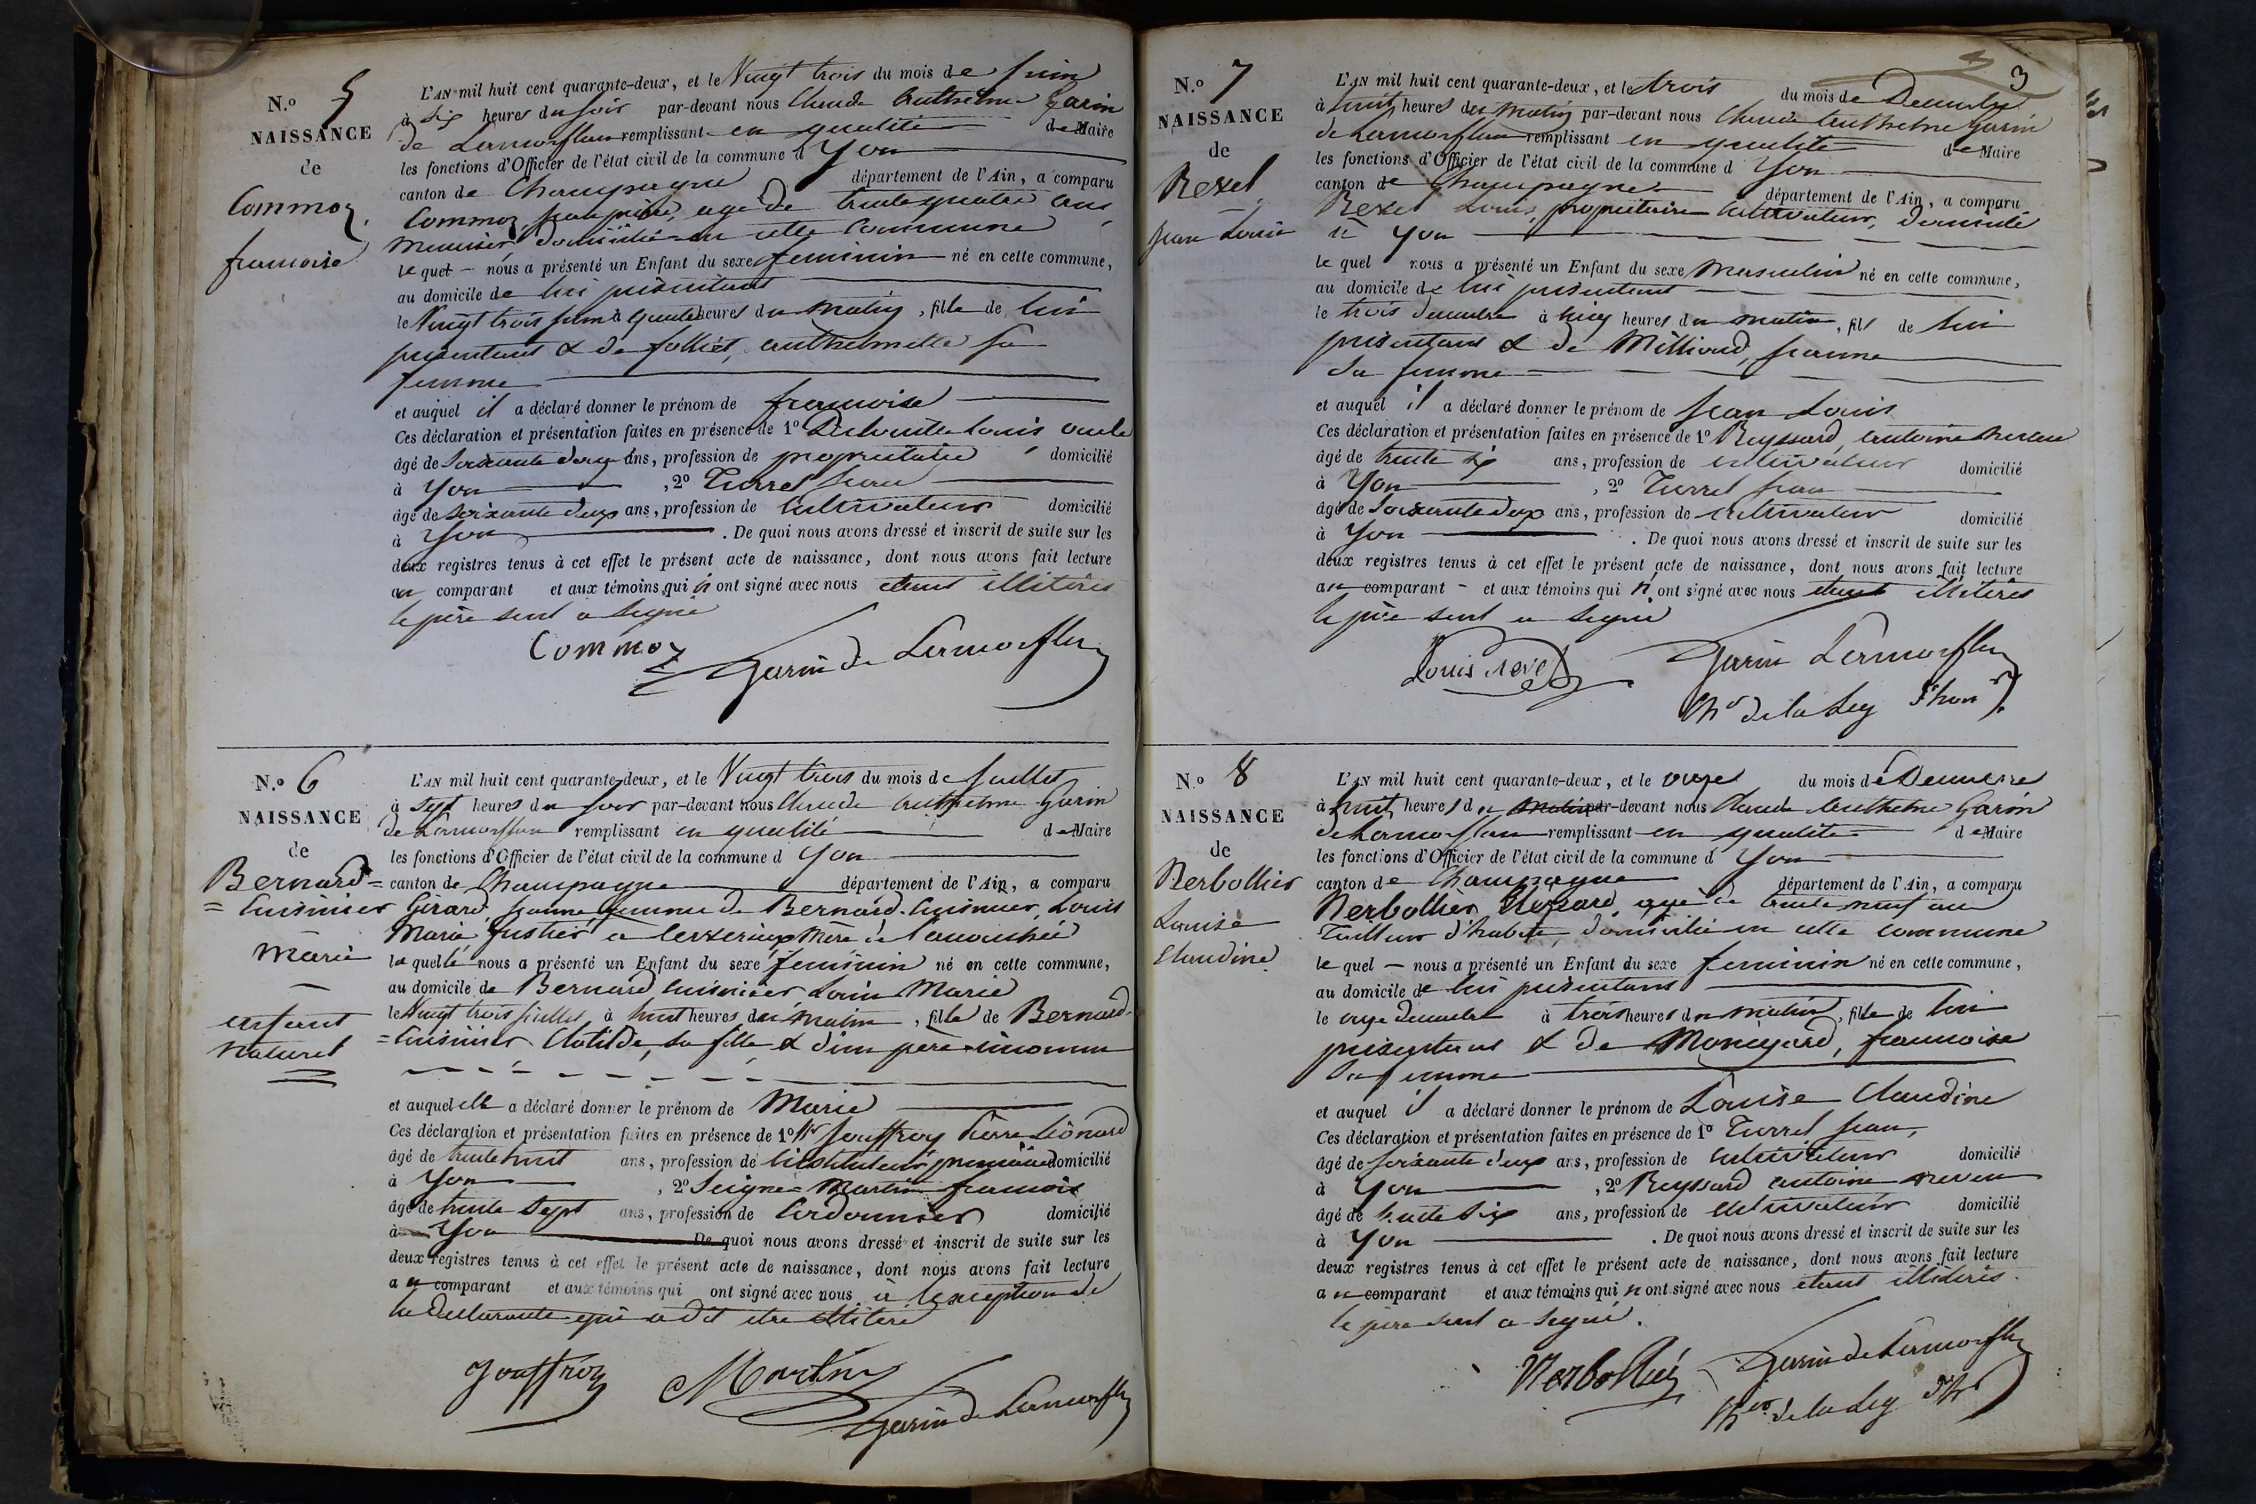 N.º 5
NAISSANCE
de
Commoz,
francoise
L'AN mil huit cent quarante-deux, et le Vingt trois du mois de Juin
à six heures du soir par-devant nous Claude Anthelme Garin
de Lamorflan remplissant en qualité de Maire
les fonctions d'Officier de l'état civil de la commune d Yon
canton de Champagne département de l'Ain, a comparu
Commoz, agé de trente quatre ans
menuisier domicilié en cette Commune
le quel nous a présenté un Enfant du sexe feminin né en cette commune,
au domicile de lui présentant
le Vingt trois Juin à heures du matin, fille de lui
présentant & de Folliet, anthelmette sa
femme
et auquel il a déclaré donner le prénom de francoise
Ces déclaration et présentation faites en présence de 1º Louis
âgé de Soixante ans, profession de propriétaire domicilié
à Yon, 2º Turrel Jean
âgé de soixante deux ans, profession de Cultivateur domicilié
à Yon. De quoi nous avons dressé et inscrit de suite sur les
deux registres tenus à cet effet le présent acte de naissance, dont nous avons fait lecture
au comparant et aux témoins qui n ont signé avec nous etant illitérés
le père seul a signé
Commoz
Garin de Lamorflan
N.º 6
NAISSANCE
de
Bernard=
=Cuisinier
Marie
enfant
naturel
L'AN mil huit cent quarante-deux, et le Vingt trois du mois de Juillet
à sept heures du soir par-devant nous Claude Anthelme Garin
de Lamorflan remplissant en qualité de Maire
les fonctions d'Officier de l'état civil de la commune d Yon
canton de Champagne département de l'Ain, a comparu
Girard, Jeanne femme de Bernard-Cuisinier, Louis
Marie Mère de l'accouchée
la quelle nous a présenté un Enfant du sexe feminin né en cette commune,
au domicile de Bernard Cuisinier Louis Marie
le Vingt trois Juillet à huit heures du Matin, fille de Bernard-
=Cuisinier Clotilde, sa fille & d'un père inconnu
et auquel elle a déclaré donner le prénom de Marie
Ces déclaration et présentation faites en présence de 1º Mr Jouffroy Pierre Léonard
âgé de trente huit ans, profession de Instituteur primaire domicilié
à Yon, 2º Seigne-Martin francois
âgé de trente Sept ans, profession de Cordonnier domicilié
à Yon De quoi nous avons dressé et inscrit de suite sur les
deux registres tenus à cet effet le présent acte de naissance, dont nous avons fait lecture
au comparant et aux témoins qui ont signé avec nous à l'exception de
la declarante qui a dit etre illitéré
Jouffroy
Martin
Garin de Lamorflan
3
N.º 7
NAISSANCE
de
Revel
Jean Louis
L'AN mil huit cent quarante-deux, et le trois du mois de Decembre
à huit heures du matin par-devant nous Claude Anthelme Garin
de Lamorflan remplissant en qualité de Maire
les fonctions d'Officier de l'état civil de la commune d Yon
canton de Champagne département de l'Ain, a comparu
Revel Louis, propriétaire Cultivateur, domicilié
à Yon
le quel nous a présenté un Enfant du sexe Masculin né en cette commune,
au domicile de lui présentant
le trois Decembre à cinq heures du matin, fils de lui
présentant & de Milliand, Jeanne
sa femme
et auquel il a déclaré donner le prénom de Jean Louis
Ces déclaration et présentation faites en présence de 1º Reyssard, antoine
âgé de trente six ans, profession de cultivateur domicilié
à Yon, 2º Turrel Jean
âgé de Soixante deux ans, profession de cultivateur domicilié
à Yon. De quoi nous avons dressé et inscrit de suite sur les
deux registres tenus à cet effet le présent acte de naissance, dont nous avons fait lecture
au comparant et aux témoins qui n'ont signé avec nous etant illitérés
le père seul a signé
Louis Revel
Garin Lamorflan
N.º 8
NAISSANCE
de
Nerbollier
Louise
Claudine
L'AN mil huit cent quarante-deux, et le onze du mois de Decembre
à huit heures du matin par-devant nous Claude Anthelme Garin
de Lamorflan remplissant en qualité de Maire
les fonctions d'Officier de l'état civil de la commune d Yon
canton de Champagne département de l'Ain, a comparu
Nerbollier agé de trente neuf ans
Tailleur d'habits, domicilié en cette commune
le quel nous a présenté un Enfant du sexe feminin né en cette commune,
au domicile de lui présentant
le onze Decembre à trois heures du matin, fille de lui
présentant & de francoise
sa femme
et auquel il a déclaré donner le prénom de Louise Claudine
Ces déclaration et présentation faites en présence de 1º Turrel Jean,
âgé de soixante deux ans, profession de cultivateur domicilié
à Yon, 2º Reyssard antoine
âgé de trente six ans, profession de cultivateur domicilié
à Yon. De quoi nous avons dressé et inscrit de suite sur les
deux registres tenus à cet effet le présent acte de naissance, dont nous avons fait lecture
au comparant et aux témoins qui n ont signé avec nous etant illitérés.
le père seul a signé.
Nerbollier
Garin de Lamorflan